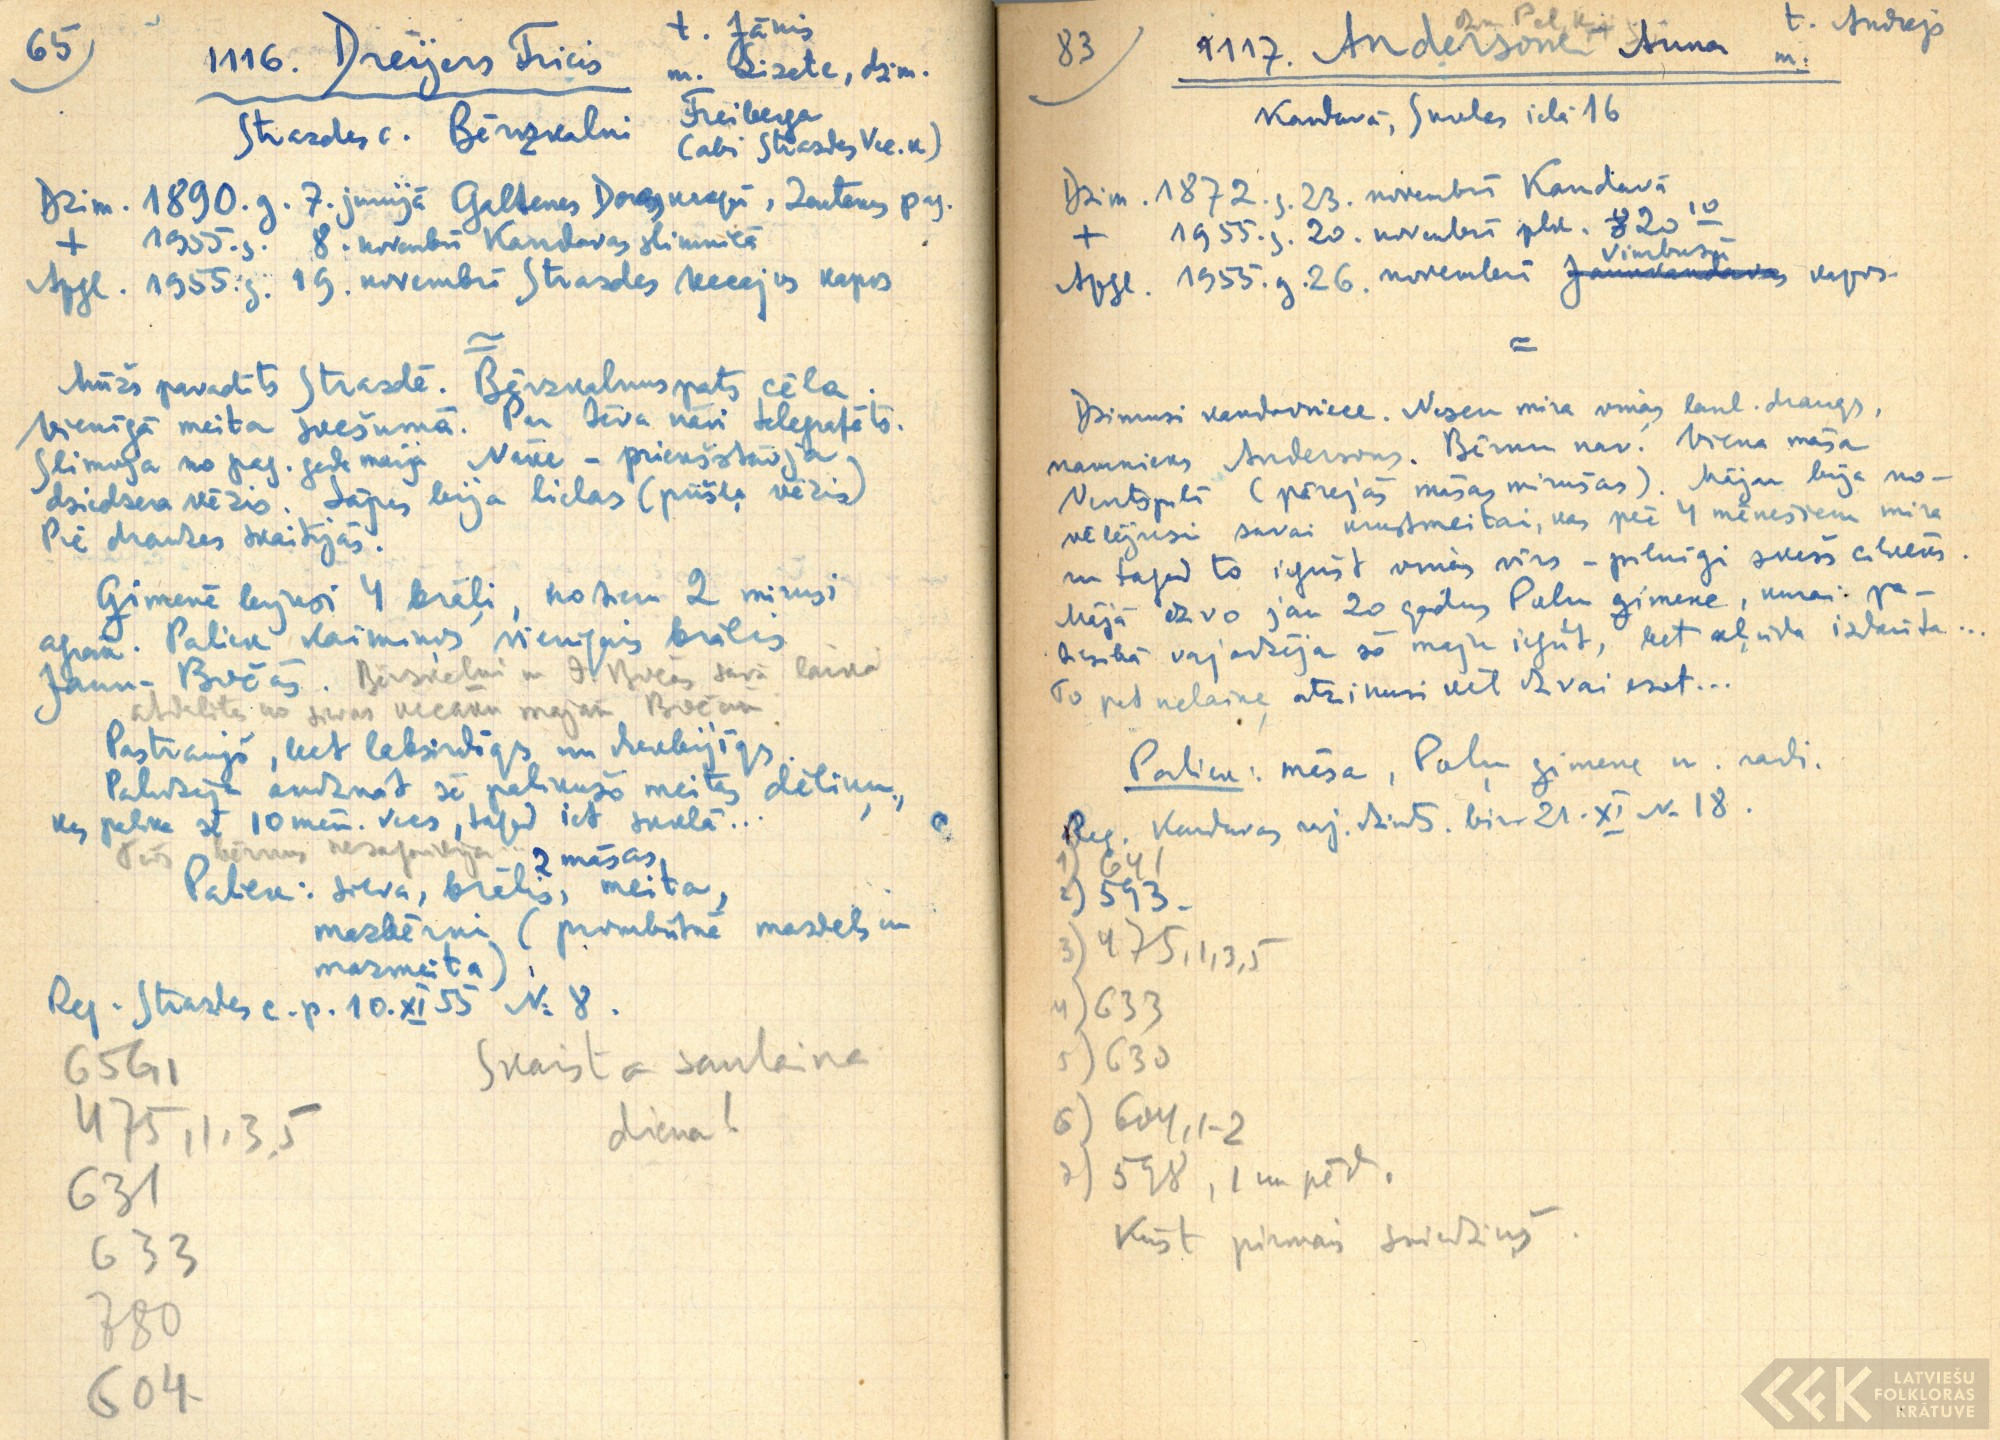 65)
1116. Dreijers Fricis
t. Jānis
m. Lizete, dzim.
Freiberga
(abi Strazdes Vec. k)
Strazdes c. Bērzkalni
Dzim. 1890. g. 7. jūnijā Galtenes, Zentenes pag.
+ 1955. g. 8. novembrī Kandavas slimnīcā
Apgl. 1955. g. 19. novembrī Strazdes Vecajos kapos
=
Mūžs pavadīts Strazdē. Bērzkalnus pats cēla.
Vienīgā meita svešumā. Par tēva nāvi telegrafēts.
Slimoja no pag. gada maija. Nāve - priekšstāvja
dziedzera vēzis. Sāpes bija lielas (pūšļa vēzis)
Pie draudzes skaitījās.
Ģimenē bijuši 4 brāļi, no tiem 2 miruši
agrāk. Paliek kaimiņos vienīgais brālis
Jaun-Bočās. Bērzkalni un J. Bočās savā laikā
atdalītas no sievas vecāku mājām Bočām.
Pastraujš, bet labsirdīgs un darbīgs.
Palīdzēja audzināt šē palikušo meitas dēliņu,
kas palika šē 10 mēn. vecs, tagad iet skolā...
bērnus nesagaidīja..
2 māsas,
Paliek: sieva, brālis, meita,
mazbērni (prombūtnē mazdēls un
mazmeita).
Reg. Strazdes c. p. 10. XI 55 № 8.
656,1
475,1,3,5
631
633
780
604
Skaista saulaina
diena!
83)
1117. Andersone Anna
t. Andrejs
m.
Kandavā, Skolas ielā 16
Dzim. 1872. g. 23. novembrī Kandavā
+ 1955. g. 20. novembrī plk. 20 10
Vimbušu
Apgl. 1955. g. 26. novembrī Jaunkandavas kapos.
=
Dzimusi kandavniece. Nesen mira viņas laul. draugs,
namnieks Andersons. Bērnu nav. Viena māsa
Ventspilī (pārējās māsas mirušas). Māju bija no-
vēlējusi savai krustmeitai, kas pēc 4 mēnešiem mira
un tagad to iegūst viņas vīrs - pilnīgi svešs cilvēks.
Mājā dzīvo jau 20 gadus Poļu ģimene, kurai pa-
tiesībā vajadzēja šo māju iegūt, bet kļūda izdarīta...
To pat nelaiķe atzinusi vēl dzīvai esot...
Paliek: māsa, Poļu ģimene u. radi.
Reg. Kandavas raj. dzimts. bir. 21. XI № 18.
1) 641
2) 593.
3) 475,1,3,5
4) 633
5) 630
6) 604,1-2
7) 598, 1 un pēd.
Kūst pirmais sniedziņš.
LATVIEŠU
FOLKLORAS
KRĀTUVE